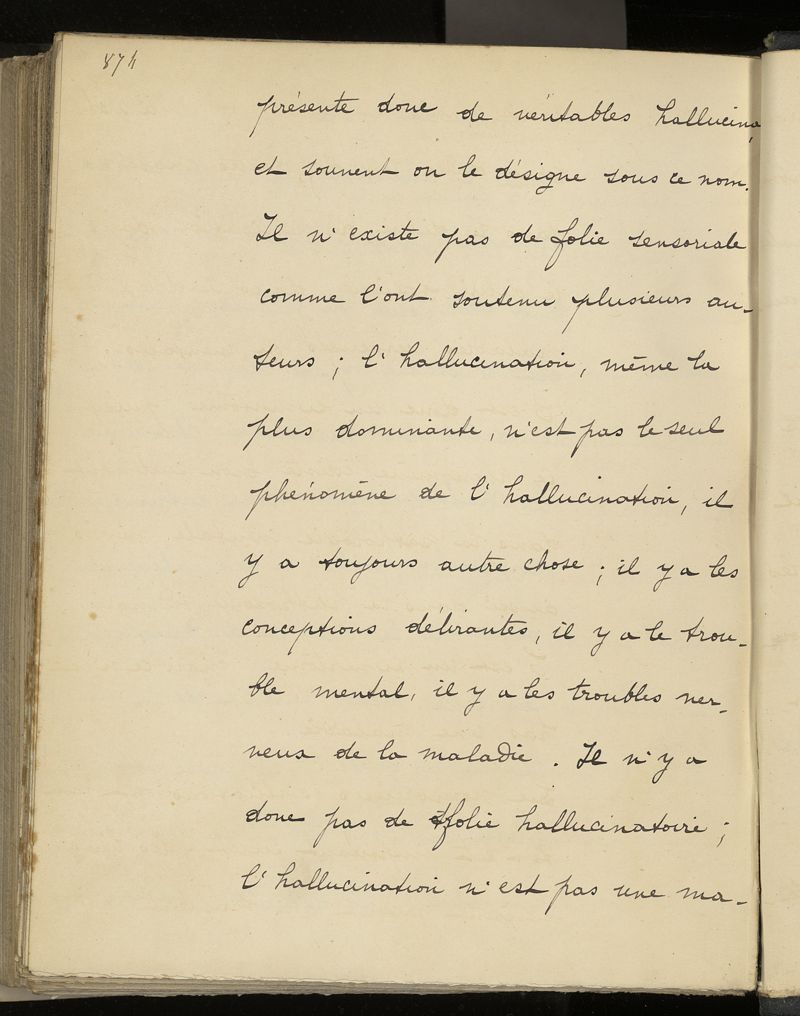 874
présente donc de véritables hallucina
et souvent on le désigne sous ce nom.
Il n'existe pas de folie sensoriale
comme l'ont soutenu plusieurs au-
teurs ; l'hallucination, même la
plus dominante, n'est pas le seul
phénomène de l'hallucination, il
y a toujours autre chose ; il y a les
conceptions délirantes, il y a le trou-
ble mental, il y a les troubles ner-
veux de la maladie. Il n'y a
donc pas de folie hallucinatoire ;
l'hallucination n'est pas une ma-